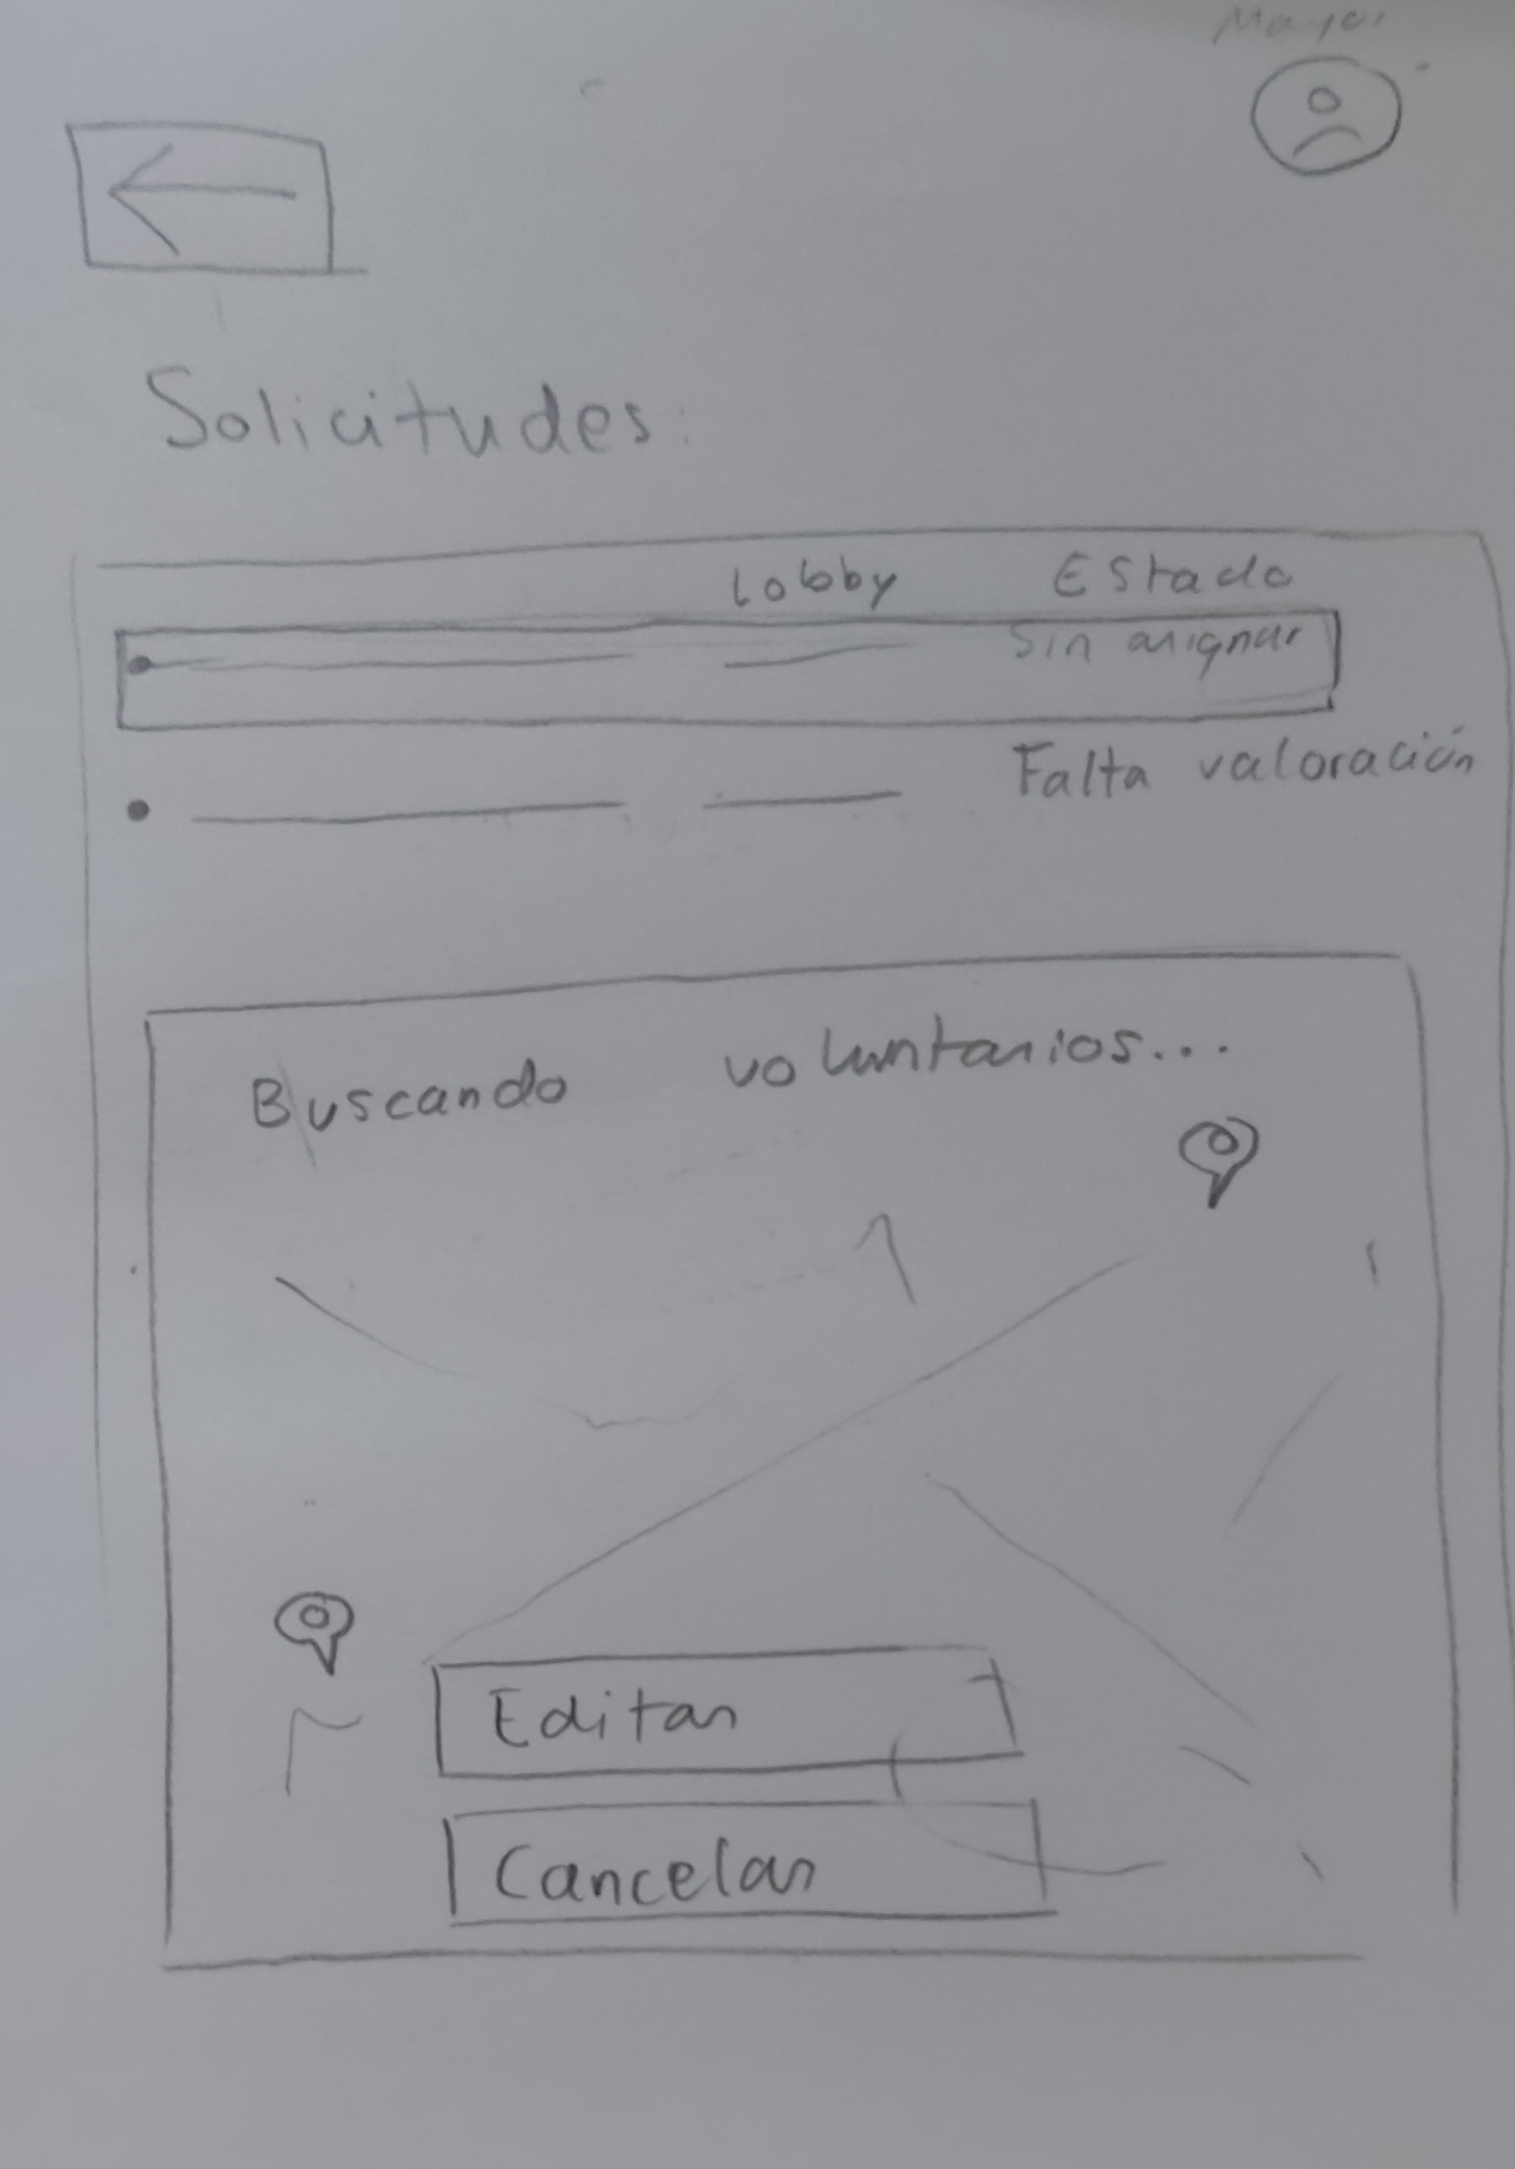 Mayor
Solicitudes:
Lobby Estado
Sin asignar
Falta valoración
Buscando voluntarios...
Editar
Cancelar